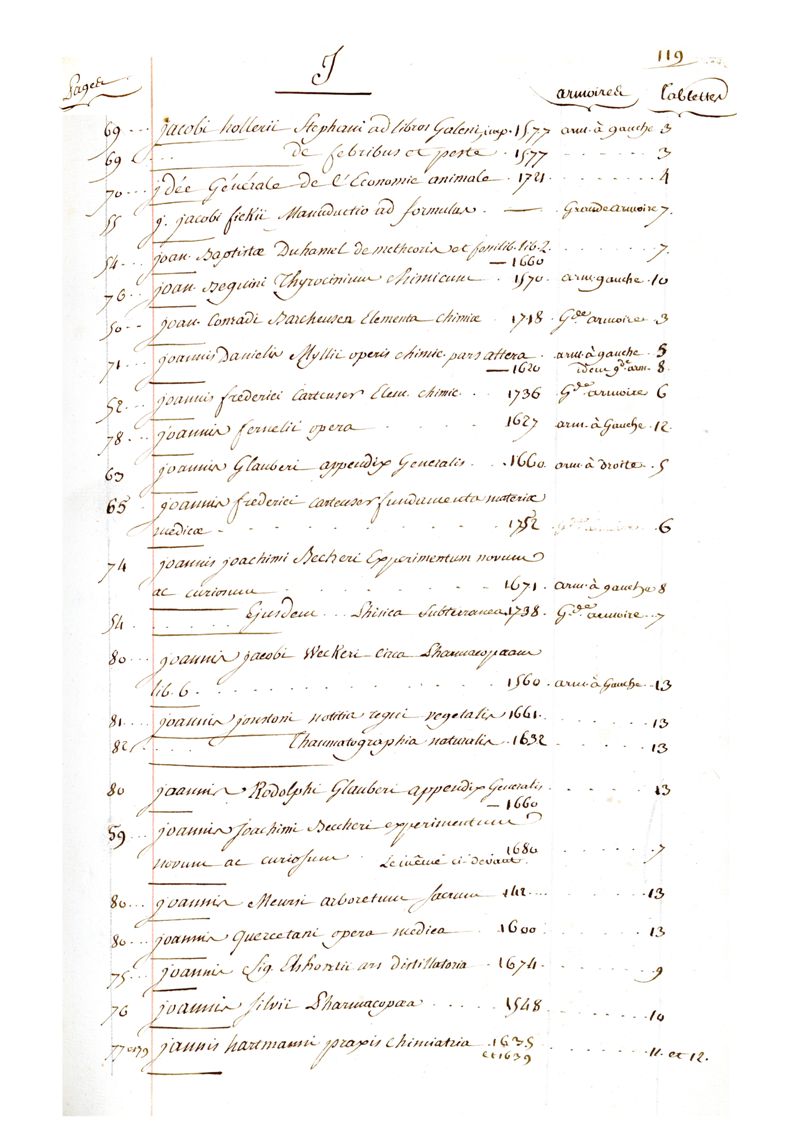 119
J
Pages armoires tablettes
69 ... jacobi hollerii Stephani ad libros Galeni, imp. 1577 arm. à gauche 3
69 ... de febribus et peste . 1577 - - - - - - 3
70 ... jdée Générale de l'Economie animale . 1721 . - - - - - - 4
55 j. jacobi fickii Manuductio ad formulas . — Grande armoire 7.
54 ... joan. Baptistæ Duhamel de metheoris et fossilib. lib. 2 . . . . . . . 7.
— 1660
76 .. joan. Beguini Thyrocinium chimicum . 1570 . arm. gauche . 10
50 .. joan. Conradi Barcheusen Elementa chimiæ . 1718 . Gde armoire . 3
71 . joannis Danielis Myllii operis chimic. pars altera . arm. à gauche . 5
— 1620 idem gde arm. 8.
52 ... joannis frederici carteuser Elem. chimic . . . 1736 Gde armoire 6
78 .. joannis fernelii opera . . . . . . 1627 . arm. à Gauche . 12.
63 joannis Glauberi appendix Generalis . . . 1660. arm. à droite . 5
65 joannis frederici carteuser fundamenta materiæ
medicæ . . . . . . . . 1752 6
74 joannis joachimi Beckeri Experimentum novum
ac curiosum . . . . . . 1671 . arm. à gauche 8
54 ... . . . . . Ejusdem ... Phisica Subterranea 1738 . Gde armoire . . 7
80 ... joannis jacobi Weckeri Pharmacopæam
lib. 6 . . . . . . . . . 1560 . arm. à Gauche . 13
81 .. joannis jonstoni notitia regni vegetalis 1661 . . . . . . . 13
82 ... . . . Thaumatographia naturalis . 1632 . . . . . . 13
80 joannis Rodolphi Glauberi appendix Generalis . . . . . . 13
— 1660
59 ... joannis Joachimi Beccheri experimentum
novum ac curiosum . Le même ci devant. 1680 . . . . . . 7
80 ... joannis Meursi arboretum sacrum . . . . . . . 13
80 ... joannis Quercetani opera medica . 1600 . . . . . . 13
75 ... joannis Sig. Elshortii ars distillatoria . 1674 . . . . . . . 9
76 joannis silvii Pharmacopæa . . . . . 1548 . . . . . . . 10
77 et 79 jannis hartmanni praxis chimiatria . 1635 . . . . . . . 11. et 12.
et 1639